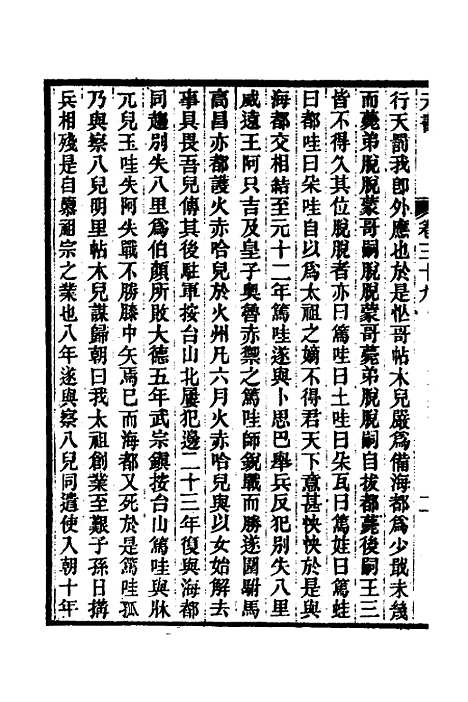 元書 卷三十九
行天罰我卽外應也於是忪哥帖木兒嚴爲備海都爲少戢未幾
而薨弟脫脫蒙哥嗣脫脫蒙哥薨弟脫脫嗣自拔都薨後嗣王三
皆不得久其位脫脫者亦曰篤哇曰土哇曰朵瓦曰篤娃曰篤蛙
曰都哇曰朵哇自以爲太祖之嫡不得君天下意甚怏怏於是與
海都交相結至元十二年篤哇遂與卜思巴舉兵反犯別失八里
威遠王阿只吉及皇子奧魯赤禦之篤哇師銳戰而勝遂圍駙馬
高昌亦都護火赤哈兒於火州凡六月火赤哈兒與以女始解去
事具畏吾兒傳其後駐軍按台山北屢犯邊二十三年復與海都
同趨別失八里爲伯顏所敗大德五年武宗鎮按台山篤哇與朕
元兒玉哇失阿失戰不勝膝中矢焉已而海都又死於是篤哇孤
乃與察八兒明里帖木兒謀歸朝曰我太祖創業至艱子孫日搆
兵相殘是自隳祖宗之業也八年遂與察八兒同遣使入朝十年